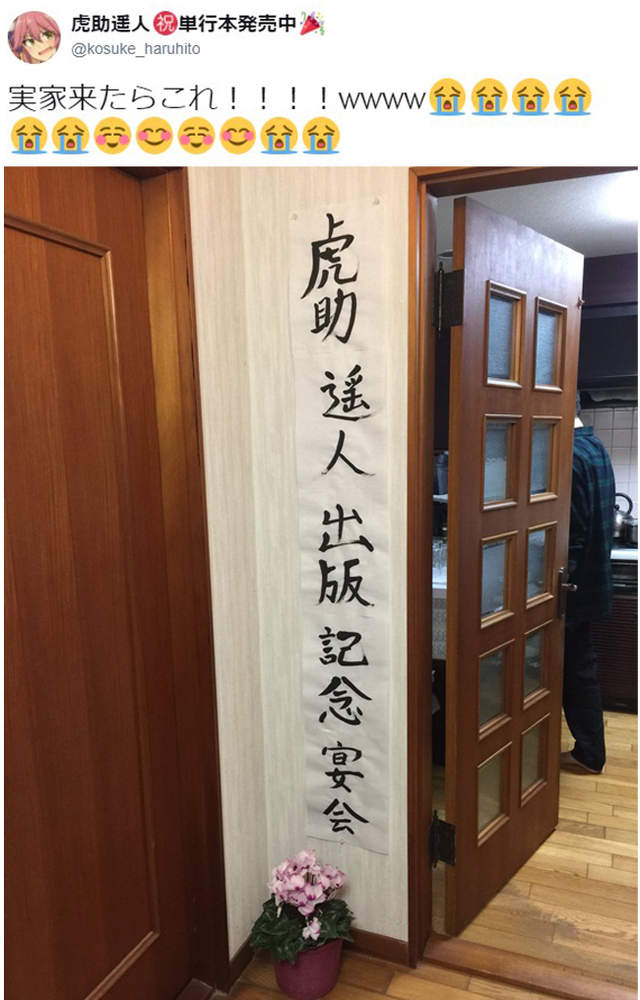 虎助遥人㊗️単行本発売中🎉
@kosuke_haruhito
実家来たらこれ！！！！wwww😭😭😭😭
😭😭☺️😊☺️😊😭😭
虎助 遥人 出版 記念 宴会